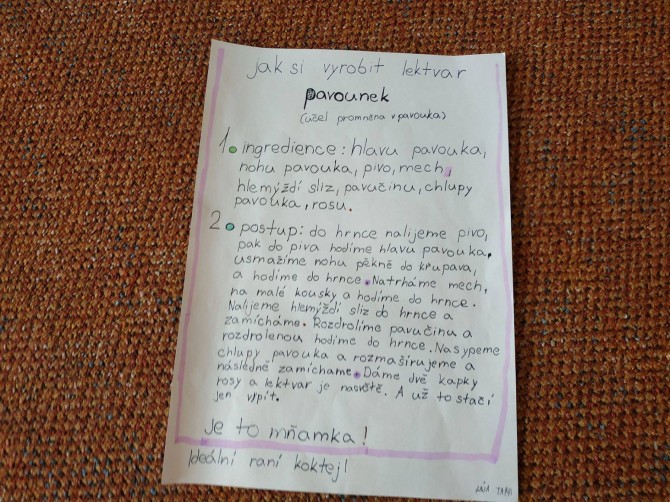 jak si vyrobit lektvar
pavounek
(účel promněna v pavouka)
1. ingredience: hlavu pavouka,
nohu pavouka, pivo, mech,
hlemýždí sliz, pavučinu, chlupy
pavouka, rosu.
2. postup: do hrnce nalijeme pivo,
pak do piva hodíme hlavu pavouka,
usmažíme nohu pěkně do křupava,
a hodíme do hrnce. Natrháme mech,
na malé kousky a hodíme do hrnce.
Nalijeme hlemýždí sliz do hrnce a
zamícháme. Rozdrolíme pavučinu a
rozdrolenou hodíme do hrnce. Nasypeme
chlupy pavouka a rozmašírujeme a
následně zamícháme. Dáme dvě kapky
rosy a lektvar je nasvětě. A už to stačí
jen vypít.
je to mňamka!
Ideální raní koktejl